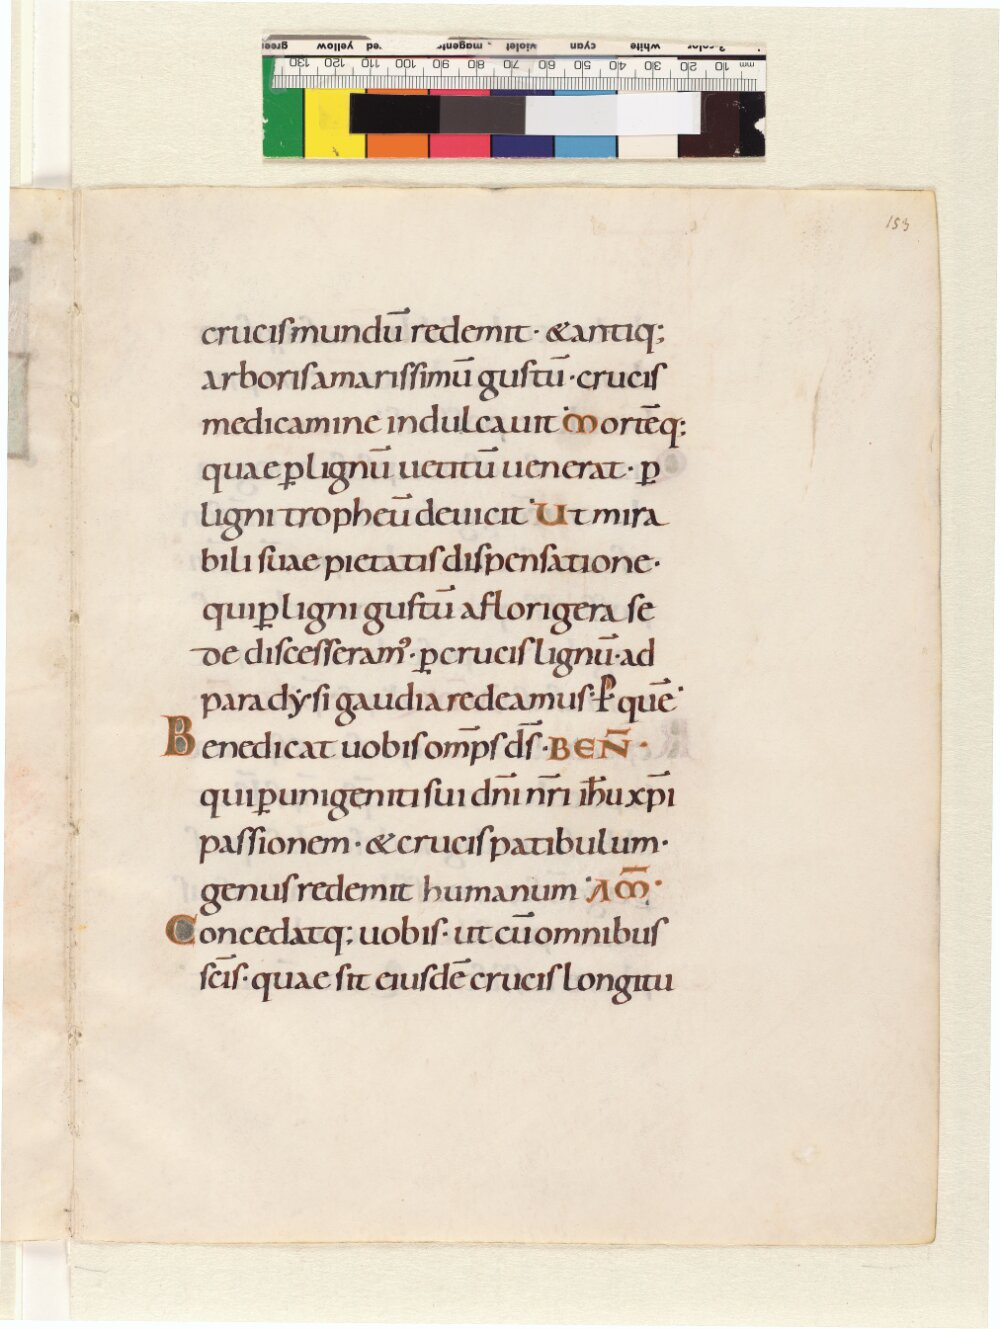 green yellow red magenta violet cyan white 3-color
130 120 110 100 90 80 70 60 50 40 30 20 10 mm
153
crucis mundū redemit· & antiq;
arboris amarissimū gustū· crucis
medicamine indulcauit· Mortēq;
quae ꝑ lignū uetitū uenerat· ꝑ
ligni tropheū deuicit· Ut mira
bili suae pietatis dispensatione·
qui ꝑ ligni gustū a florigera se
de discesseram᾽· ꝑ crucis lignū· ad
paradẏsi gaudia redeamus· P quē·
Benedicat uobis om̄ps d̄s· BEN̄·
qui ꝑ unigeniti sui dn̄i nr̄i ih̄u xp̄i
passionem· & crucis patibulum·
genus redemit humanum· AM̄·
Concedatq; uobis· ut cū omnibus
sc̄is· quae sit eiusdē crucis longitu